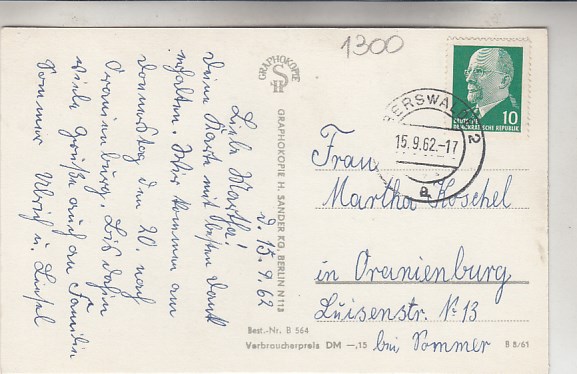 d. 15.9.62
Liebe Martha!
Deine Karte mit besten Dank
erhalten. Wir kommen am
Donnerstag den 20. nach
Oranienburg. Bis dahin
viele Grüße auch an Familie
Sommer Ulrich u. Liesel
GRAPHOKOPIE
H S
GRAPHOKOPIE H. SANDER KG, BERLIN N 113
1300
EBERSWALDE 2
15.9.62-17
a
10
DEUTSCHE
DEMOKRATISCHE REPUBLIK
Frau
Martha Koschel
in Oranienburg
Luisenstr. Nr 13
bei Sommer
Best.-Nr. B 564
Verbraucherpreis DM —,15
B 8/61